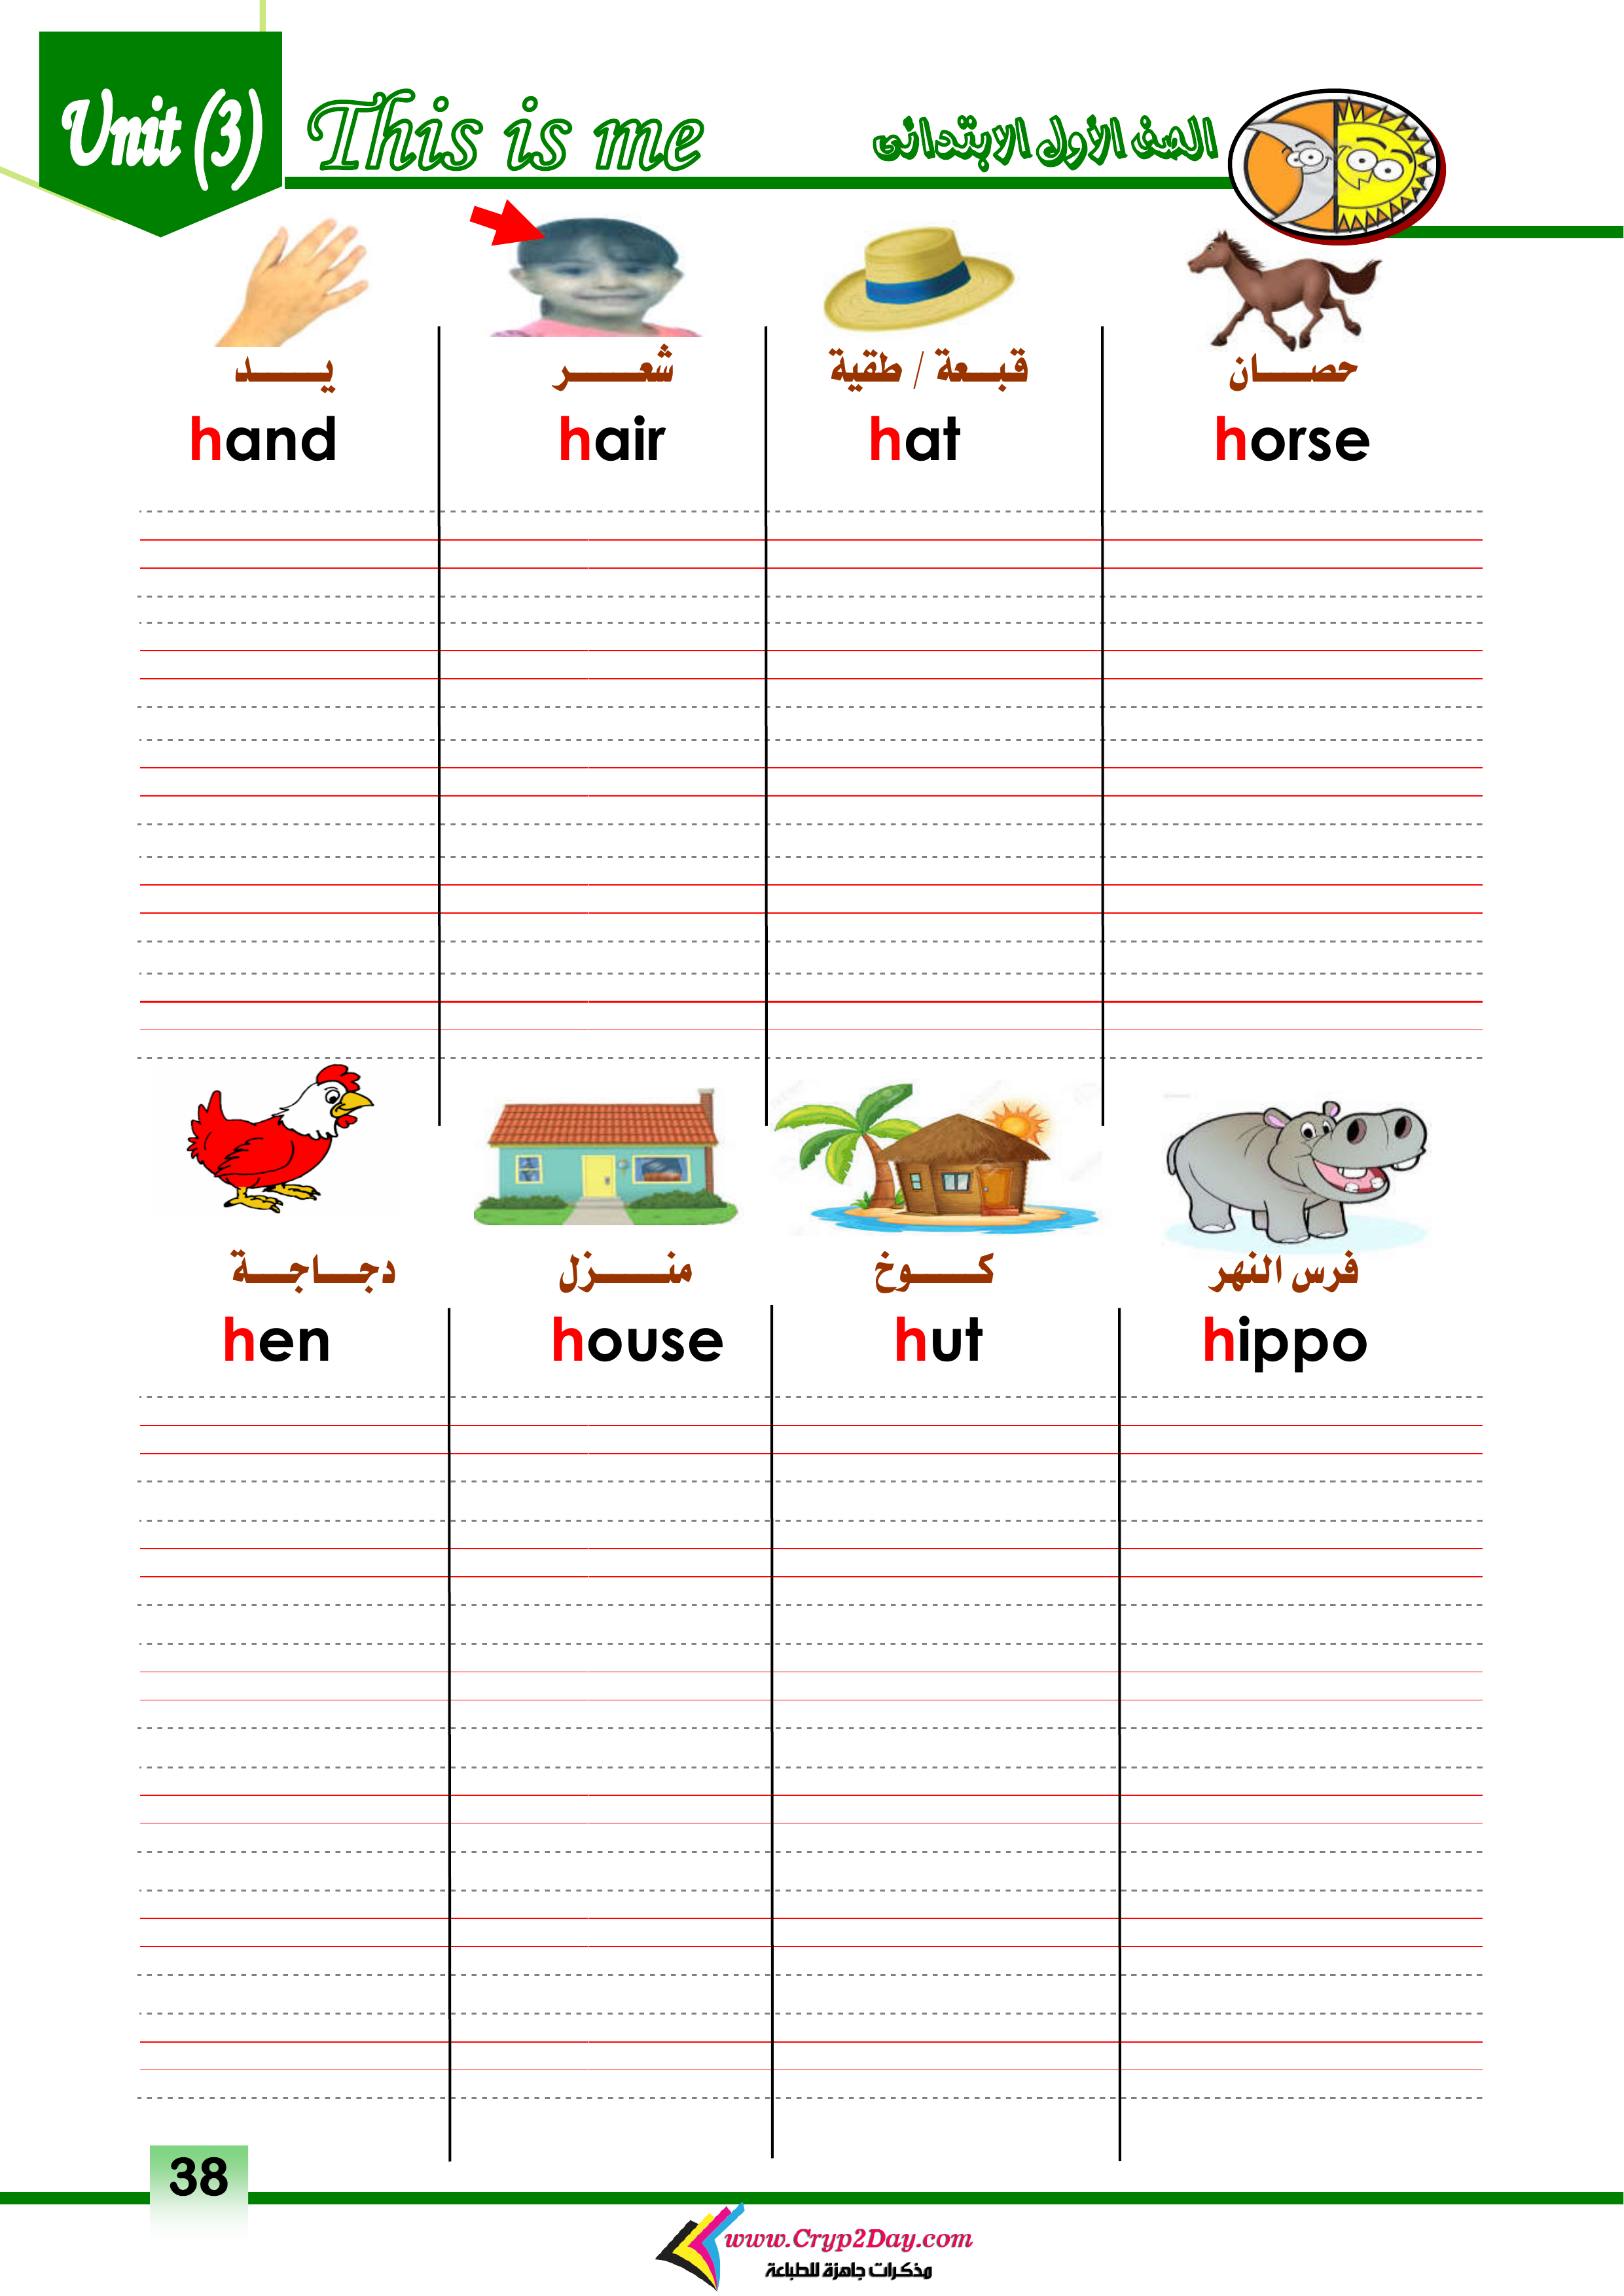 Unit (3) This is me الصف الأول الابتدائى
يـــد شعـــر قبـعة / طقية حصــان
hand hair hat horse
دجــاجــة منــزل كـــوخ فرس النهر
hen house hut hippo
38
www.Cryp2Day.com
مذكرات جاهزة للطباعة